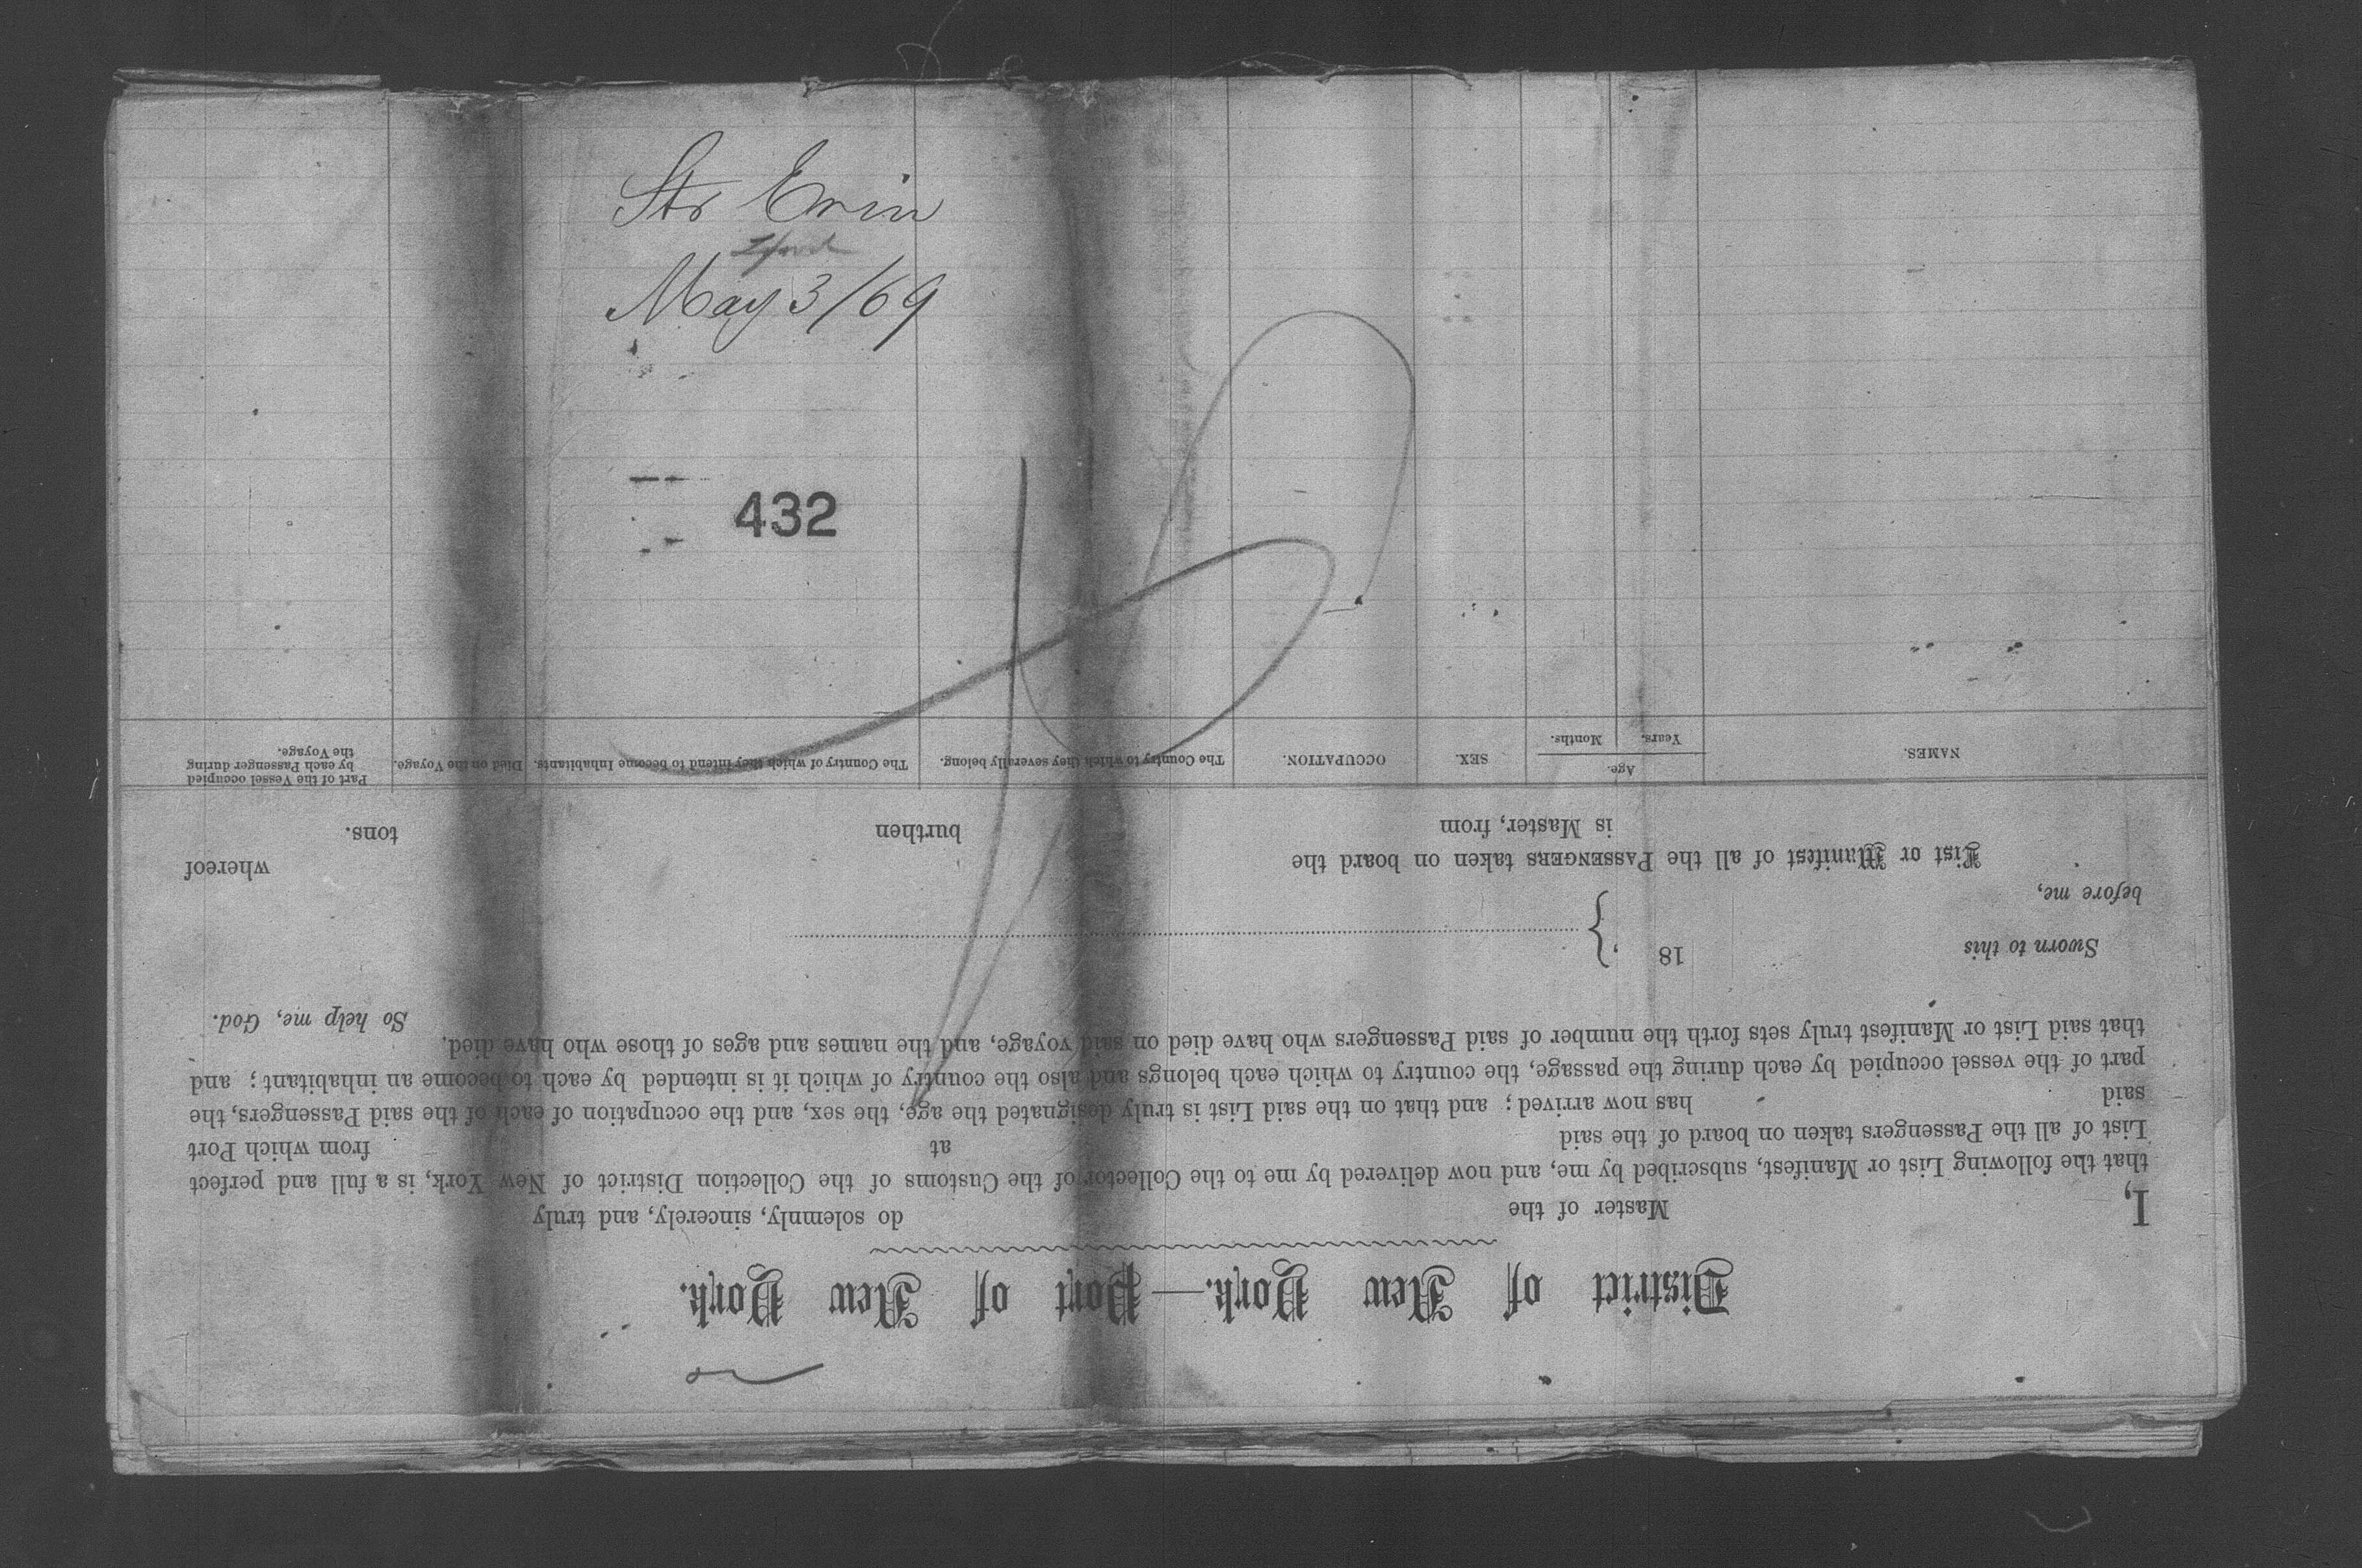 Str Erin
May 3/69
432
District of New York.—Port of New York.
I, Master of the do solemnly, sincerely, and truly
that the following List or Manifest, subscribed by me, and now delivered by me to the Collector of the Customs of the Collection District of New York, is a full and perfect
List of all the Passengers taken on board of the said at from which Port
said has now arrived; and that on the said List is truly designated the age, the sex, and the occupation of each of the said Passengers, the
part of the vessel occupied by each during the passage, the country to which each belongs and also the country of which it is intended by each to become an inhabitant; and
that said List or Manifest truly sets forth the number of said Passengers who have died on said voyage, and the names and ages of those who have died.
So help me, God.
Sworn to this 18
before me,
List or Manifest of all the PASSENGERS taken on board the whereof
is Master, from burthen tons.
NAMES.
Age.
Years. Months.
SEX.
OCCUPATION.
The Country to which they severally belong.
The Country of which they intend to become Inhabitants.
Died on the Voyage.
Part of the Vessel occupied
by each Passenger during
the Voyage.